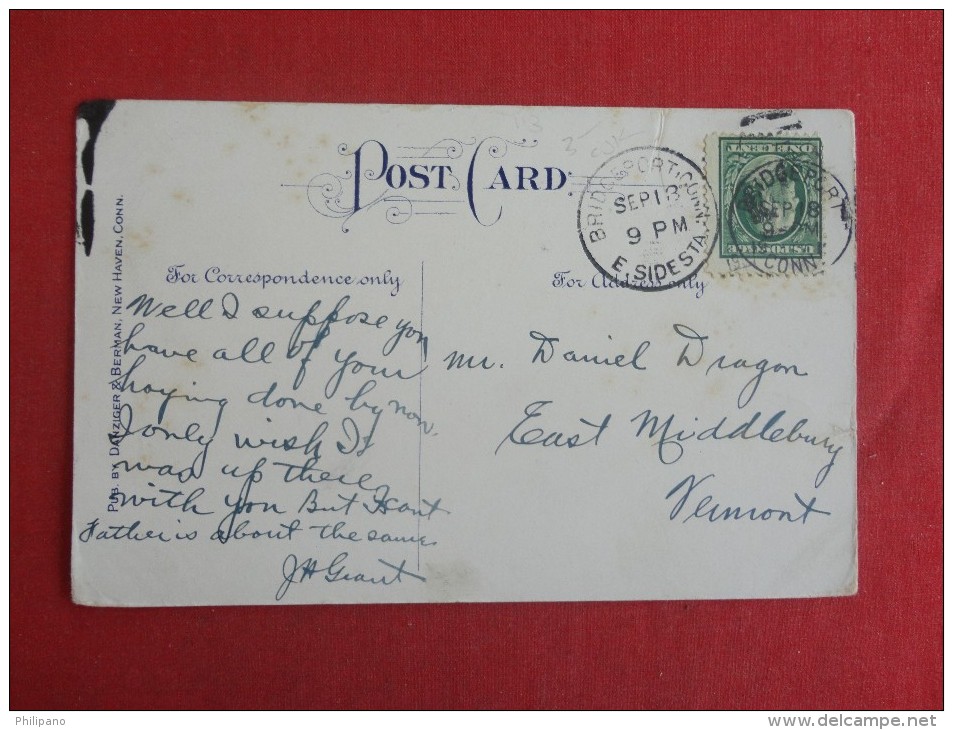 POST CARD
For Correspondence only
For Address only
BRIDGEPORT CONN.
SEP 18
9 PM
E. SIDE STA.
BRIDGEPORT
SEP 18
9 PM
CONN
U.S. POSTAGE
ONE CENT
PUB. BY DANZIGER & BERMAN, NEW HAVEN, CONN.
Well I suppose you
have all of your
haying done by now.
I only wish I
was up there
with you But I cant
Father is about the same
JH Grant
Mr. Daniel Dragon
East Middlebury
Vermont
Philipano
www.delcampe.net